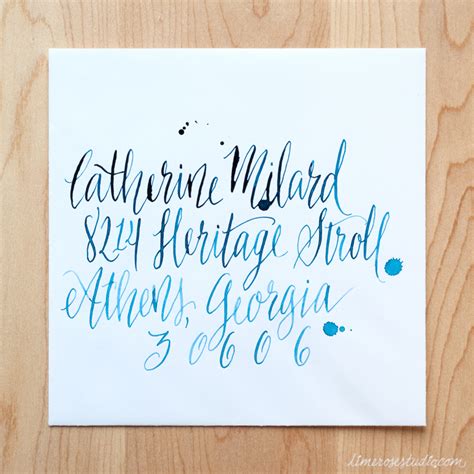 Catherine Milard
8214 Heritage Stroll
Athens, Georgia
30606
limerosestudio.com